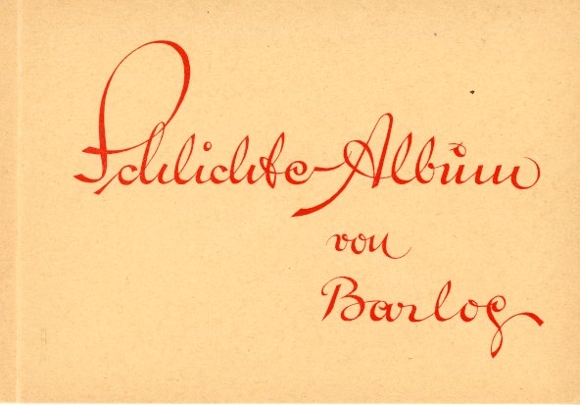 Schlichte-Album
von
Barlog